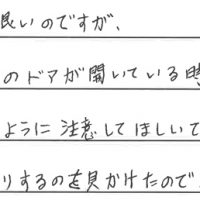 良いのですが、
のドアが開いている時
ように注意してほしいで
りするのを見かけたので